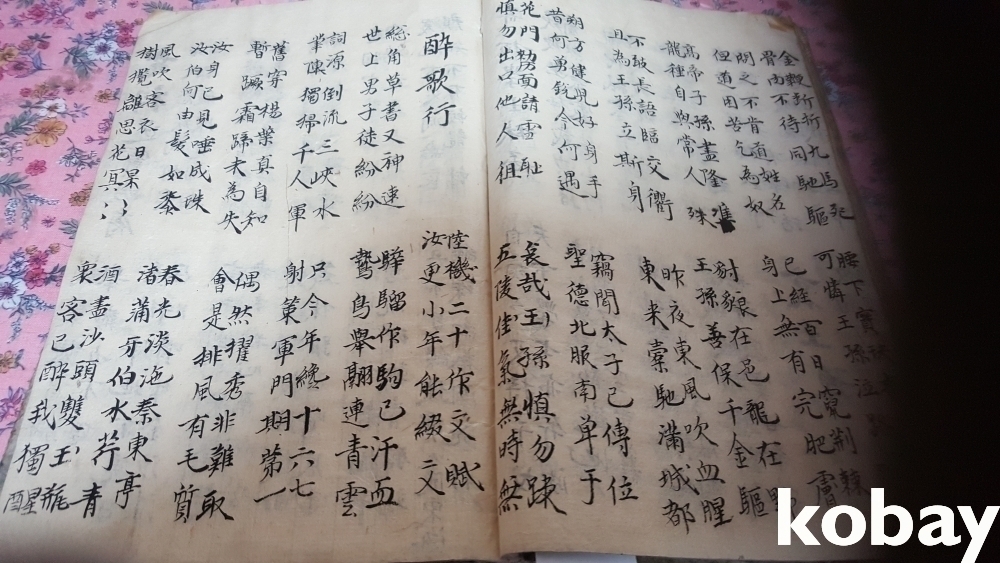 金鞭斷折九馬死
骨肉不待同馳驅
腰下寶
可憐王孫泣
問之不肯道姓名
但道困苦乞為奴
已經百日竄荊棘
身上無有完肥膚
高帝子孫盡隆準
龍種自與常人殊
豺狼在邑龍在野
王孫善保千金驅
不敢長語臨交衢
且為王孫立斯身
昨夜東風吹血腥
東来橐馳滿城都
朔方健児好身手
昔何勇銳今何遇
竊聞太子已傳位
聖德北服南单于
花門剺面請雪耻
慎勿出口他人徂
哀哉王孫慎勿踈
五陵佳氣無時無
醉歌行
陸機二十作文賦
汝更小年能綴文
総角草書又神速
世上男子徒紛紛
驊騮作駒已汗血
鷙鳥舉翮連青雲
詞源倒流三峽水
筆陣獨掃千人軍
只今年纔十六七
射策軍門期第一
舊穿楊葉真自知
暫蹶霜蹄未為失
偶然擢秀非難取
會是排風有毛質
汝身已見唾成珠
汝伯何由髮如桼
春光淡沲秦東亭
渚蒲牙伯水荇青
風吹客衣日杲〻
樹攪離思花冥〻
酒盡沙頭雙玉瓶
衆客已醉我獨醒
kobay